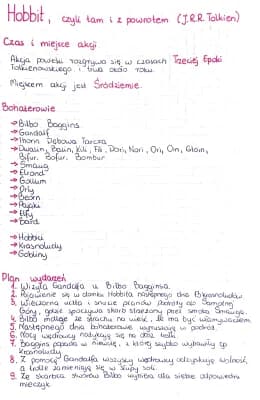 Hobbit, czyli tam i z powrotem (J.R.R. Tolkien)
Czas i miejsce akcji
Akcja powieści rozgrywa się w czasach Trzeciej Epoki
Tolkienowskiego i trwa około roku.
Miejscem akcji jest Śródziemie.
Bohaterowie
→ Bilbo Baggins
→ Gandalf
→ Thorin Dębowa Tarcza
→ Dwalin, Balin, Kili, Fili, Dori, Nori, Ori, Oin, Gloin,
Bifur, Bofur, Bombur
→ Smaug
→ Elrond
→ Gollum
→ Orły
→ Beorn
→ Pająki
→ Elfy
→ Bard
→ Hobbici
→ Krasnoludy
→ Gobliny
Plan wydarzeń
1. Wizyta Gandalfa u Bilba Bagginsa.
2. Pojawienie się w domku Hobbita następnego dnia krasnoludów.
3. Wieczorna uczta i snucie planów podróży do Samotnej
Góry, gdzie spoczywa skarb strzeżony przez smoka Smauga.
4. Bilbo mdleje ze strachu na wieść, że ma być włamywaczem.
5. Następnego dnia bohaterowie wyruszają w podróż.
6. Nocą wędrowcy natykają się na trolle.
7. Baggins popada w niewolę, z której szybko wybawiają go
krasnoludy
8. Z pomocą Gandalfa wszyscy wędrowcy odzyskują wolność,
a trolle zamieniają się w słupy soli.
9. Ze skarbca stworów Bilbo wybiera dla siebie odpowiedni
mieczyk.